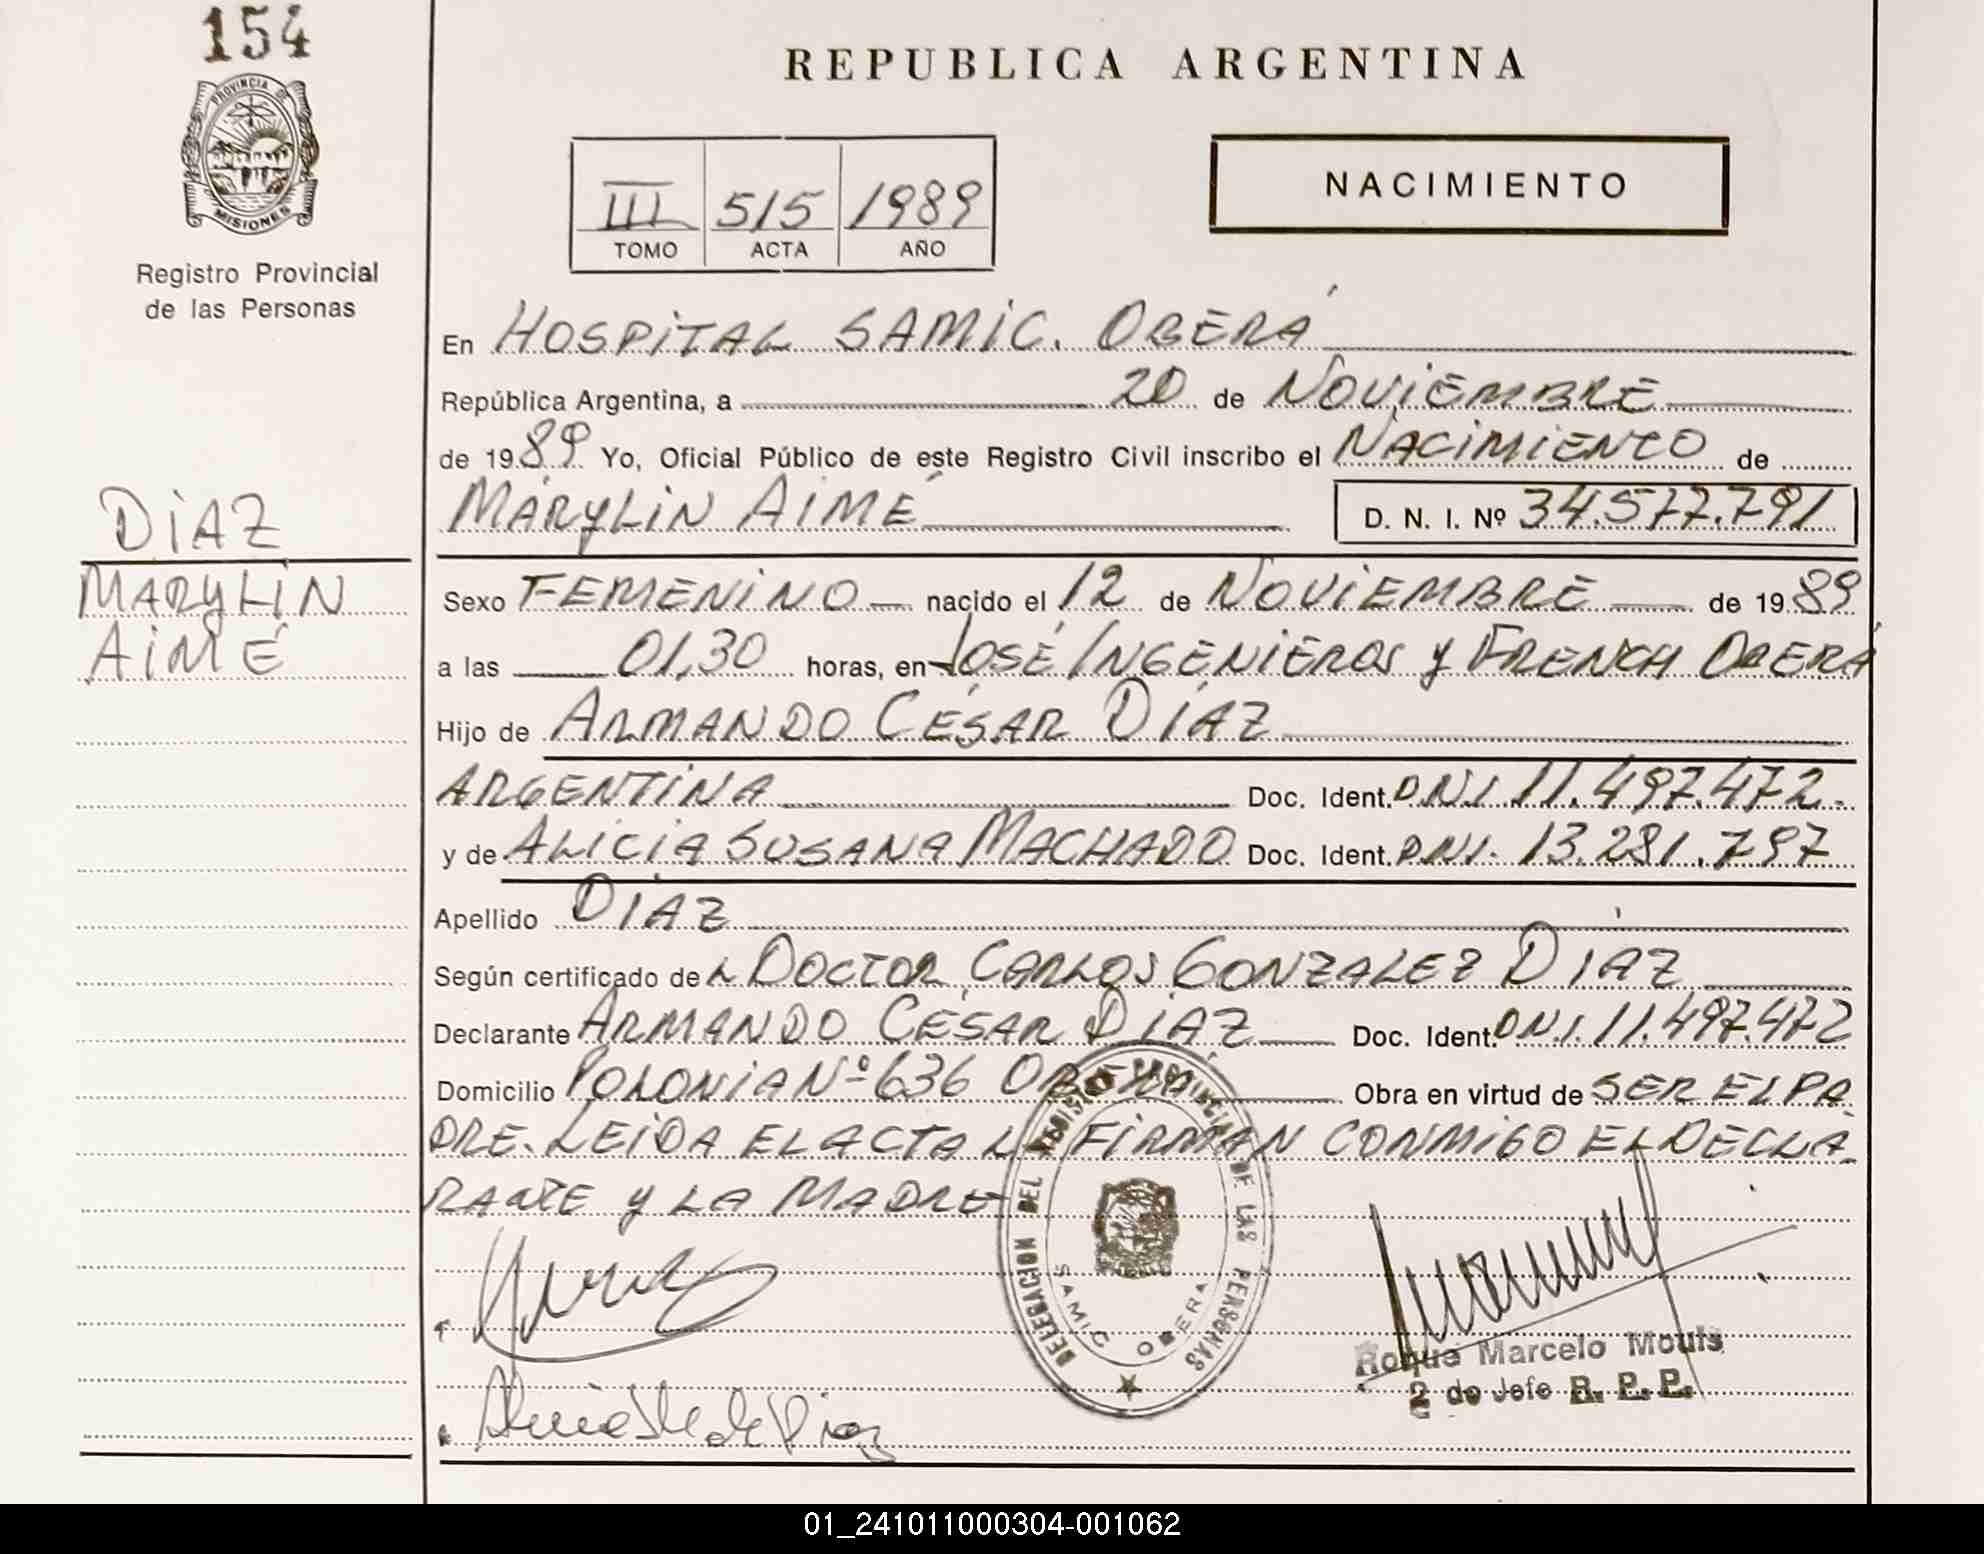 154
PROVINCIA DE
MISIONES
Registro Provincial
de las Personas
DIAZ
MARYLIN
AIMÉ
REPUBLICA ARGENTINA
III 515 1989
TOMO ACTA AÑO
NACIMIENTO
En HOSPITAL SAMIC. OBERÁ
República Argentina, a 20 de NOVIEMBRE
de 1989 Yo, Oficial Público de este Registro Civil inscribo el NACIMIENTO de
MARYLIN AIMÉ D. N. I. Nº 34.577.791
Sexo FEMENINO nacido el 12 de NOVIEMBRE de 1989
a las 01,30 horas, en JOSÉ INGENIEROS y FRENCH OBERÁ
Hijo de ARMANDO CÉSAR DÍAZ
ARGENTINA Doc. Ident. DNI. 11.497.472.
y de ALICIA SUSANA MACHADO Doc. Ident. DNI. 13.281.797
Apellido DIAZ
Según certificado de L DOCTOR CARLOS GONZALEZ DIAZ
Declarante ARMANDO CÉSAR DÍAZ Doc. Ident. DNI. 11.497.472
Domicilio POLONIA Nº 636 OBERÁ Obra en virtud de SER EL PA
DRE. LEIDA EL ACTA LA FIRMAN CONMIGO EL DECLA
RANTE y LA MADRE
DELEGACION DEL REGISTRO PROVINCIAL DE LAS PERSONAS
SAMIC OBERA
Roque Marcelo Mouls
2 do Jefe R. P. P.
01_241011000304-001062